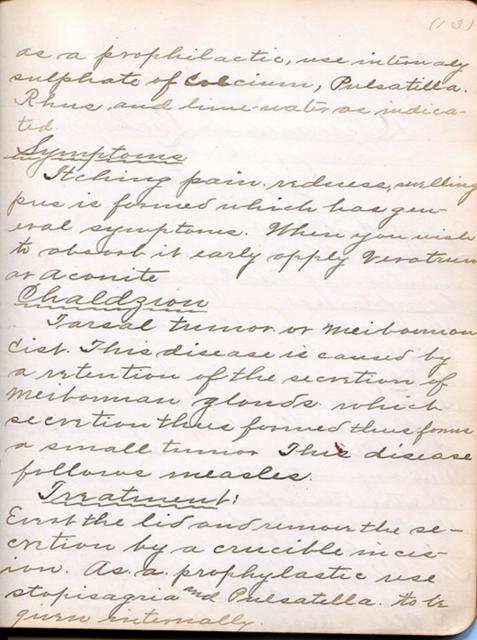 (13)
as a prophilactic, use internaly
sulphate of Calcium, Pulsatilla.
Rhus, and lime-water as indica-
ted.
Symptoms
Itching pain. redness, swelling
pus is formed which has gen-
eral symptoms. When you wish
to absorb it early apply Veratrum
or Aconite
Chaldzion
Tarsal tumor or Meibomian
cist. This disease is caused by
a retention of the secretion of
Meibomian glands which
secretion thus formed thus forms
a small tumor This disease
follows measles.
Treatment:
Evert the lid and remove the se-
cretion by a crucible incis-
ion. As. a. prophylastic use
stapisagria and Pulsatilla. to be
given internally.